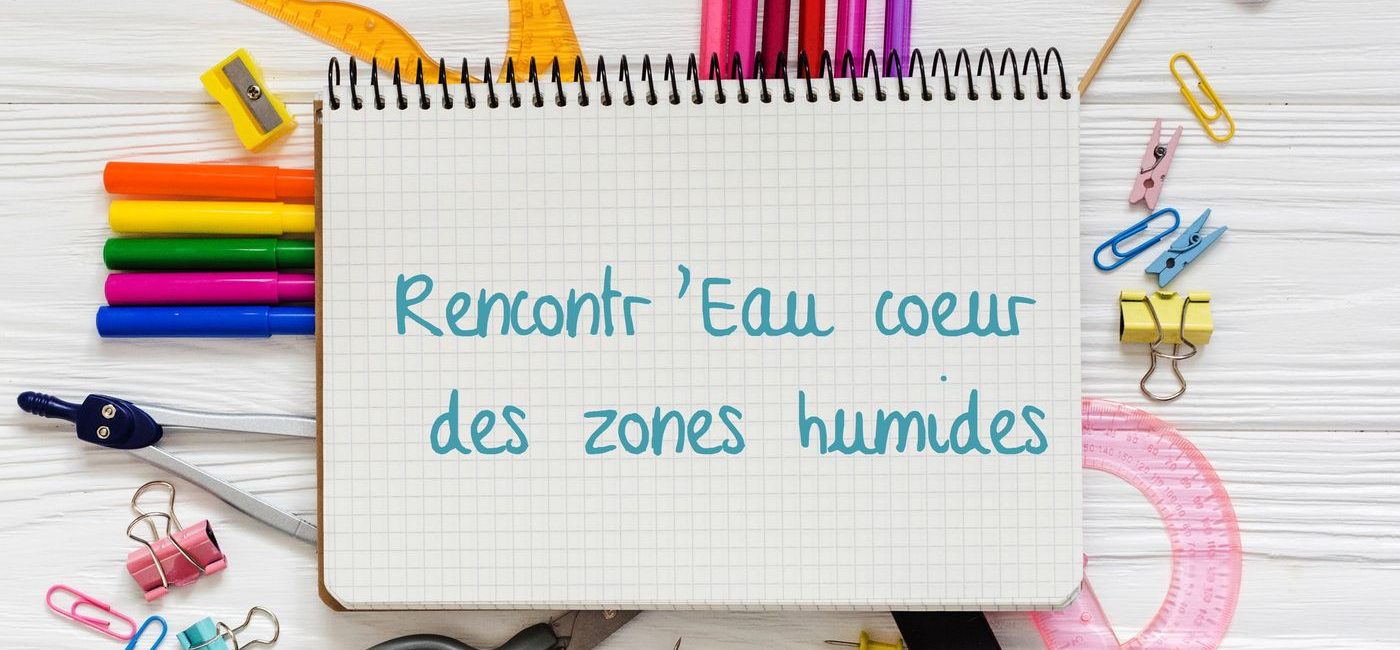 Rencontr'Eau coeur
des zones humides